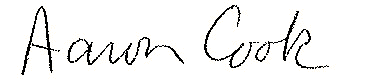 Aaron Cook